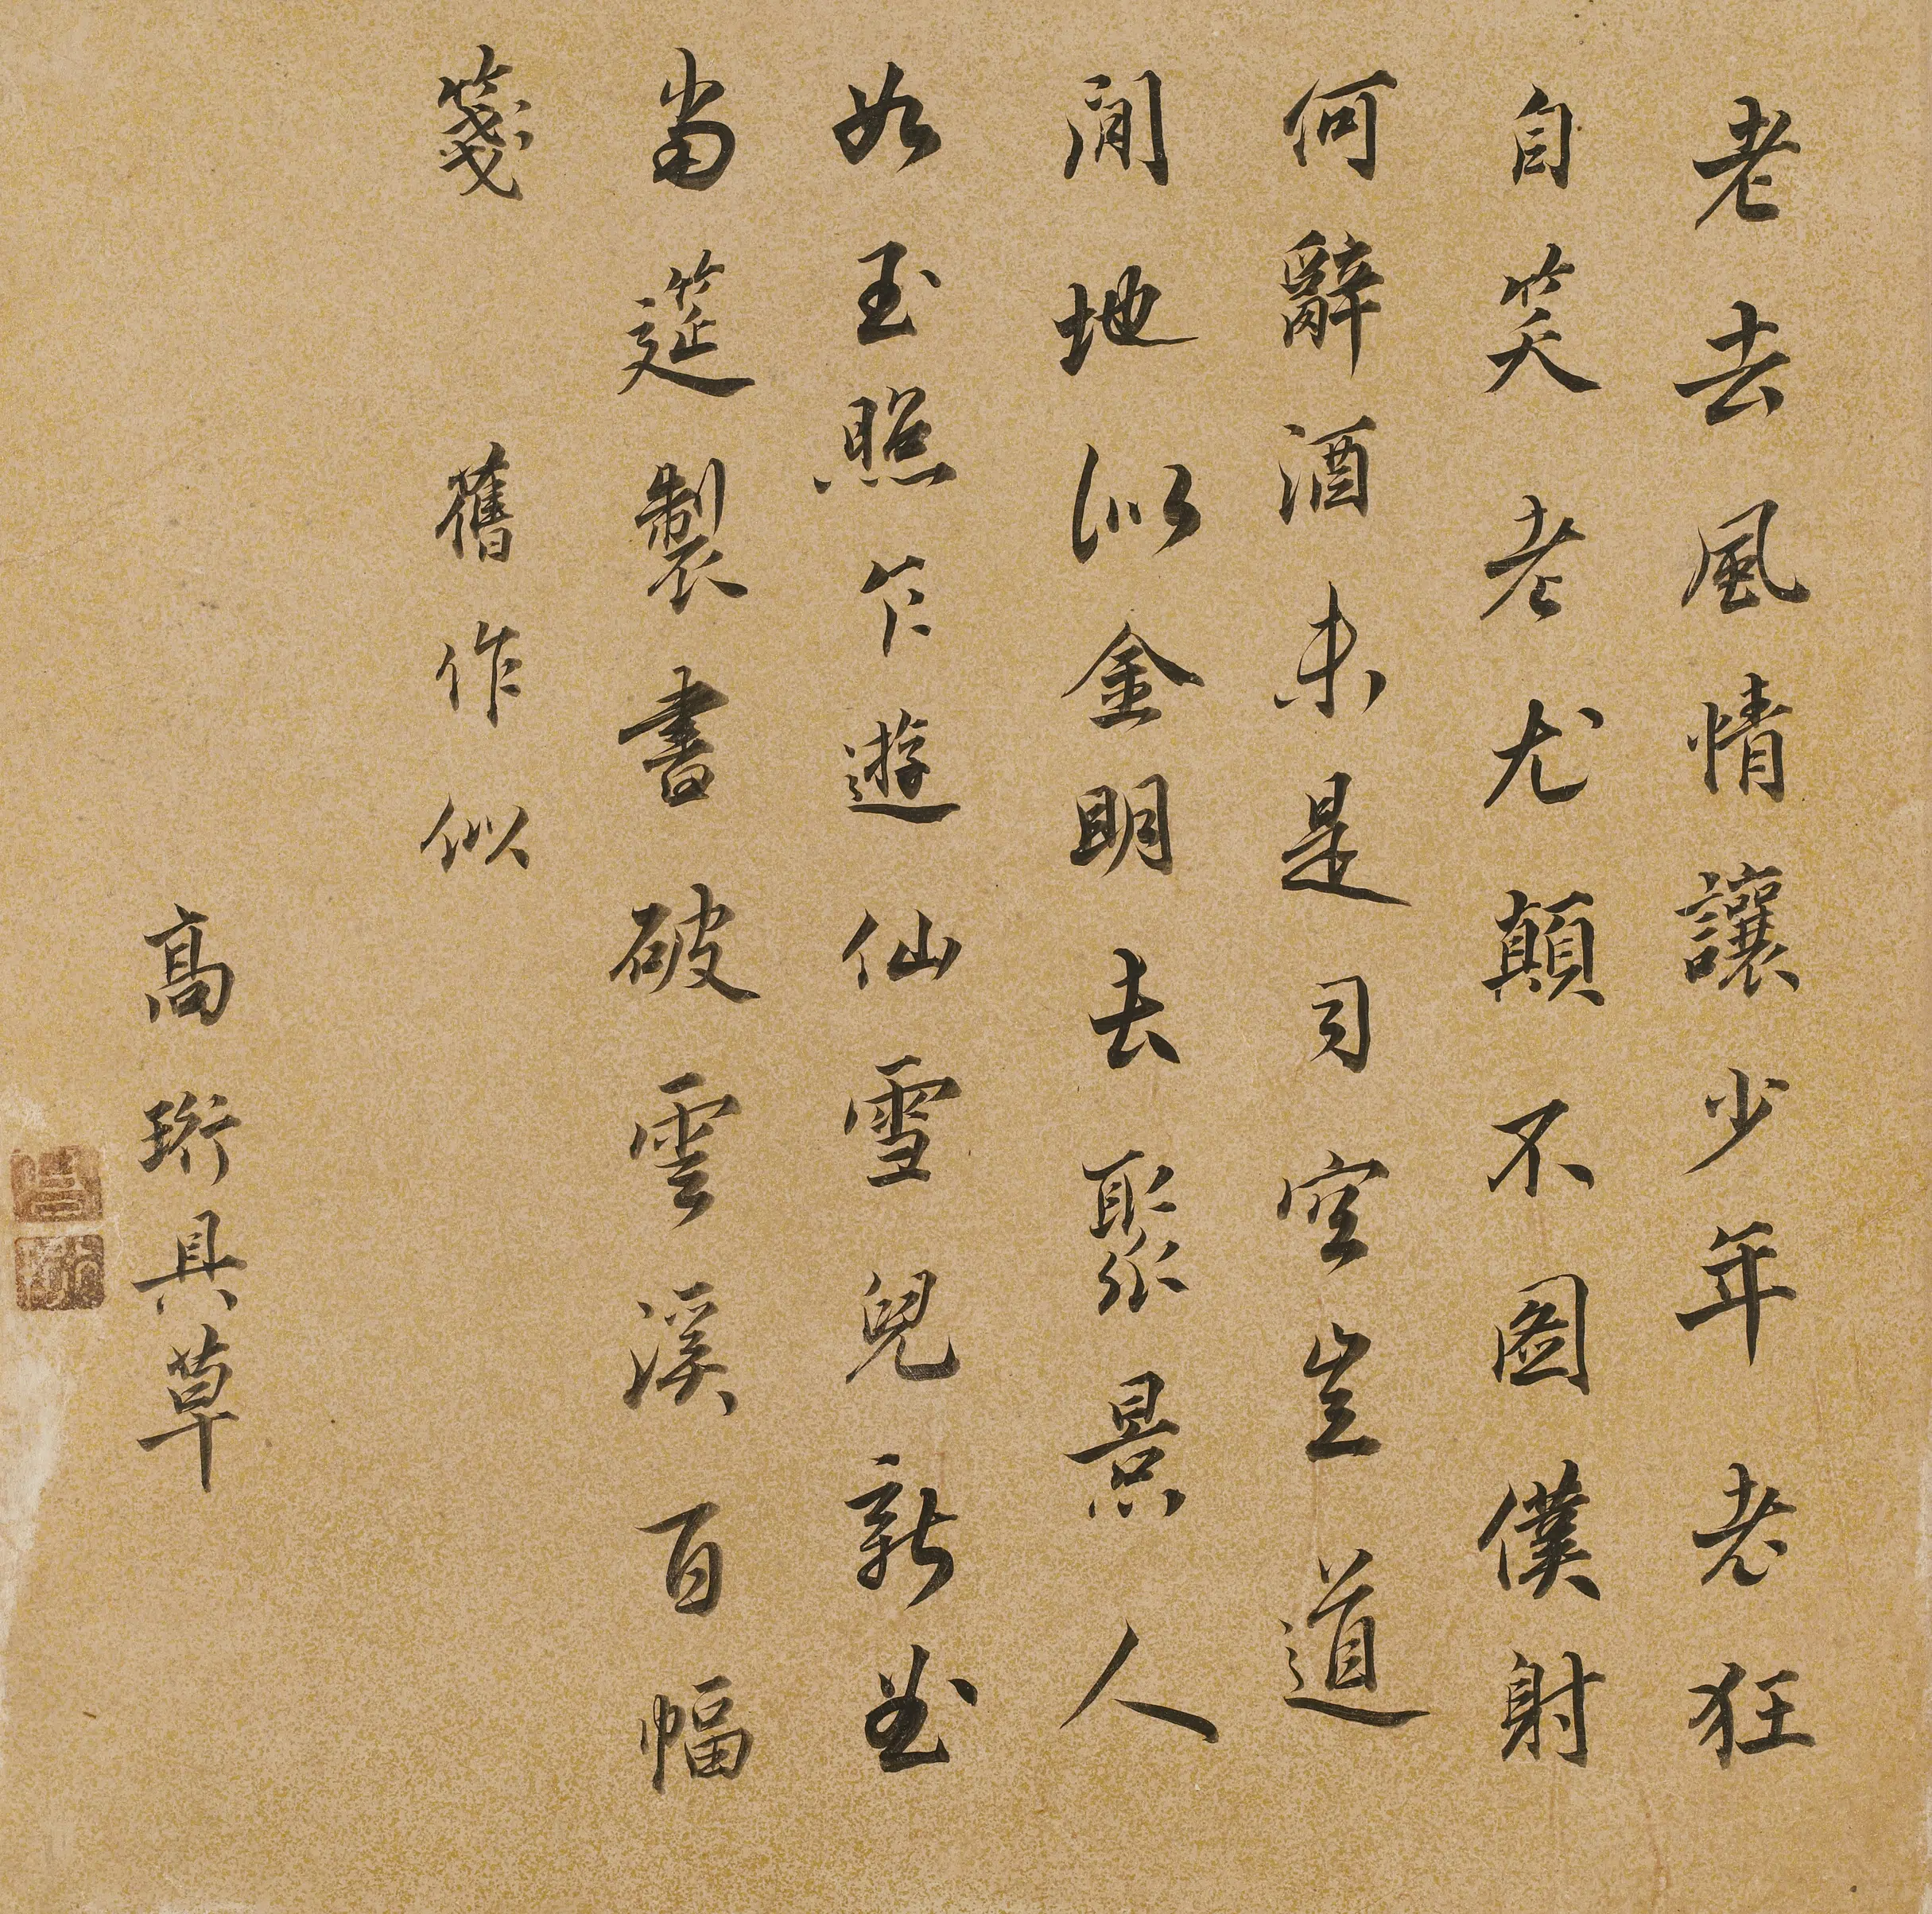 老去風情讓少年老狂
自笑老尤顛不圖僕射
何辭酒未是司空豈道
閒地似金明去聚景人
如玉照乍遊仙雪兒新曲
當筵製書破雲溪百幅
箋 舊作似
高珩具草